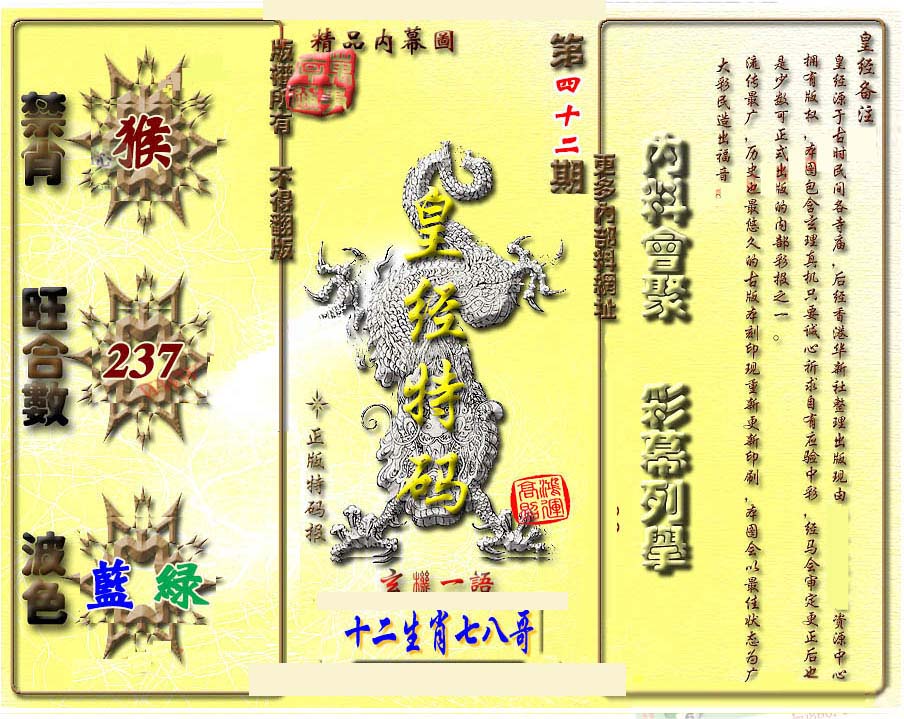 精品内幕圖
第四十二期
版權所有 不得翻版
更多內部料網址
禁肖
猴
旺合數
237
波色
藍 綠
皇经特码
正版特码报
鴻運高照
玄機一語
十二生肖七八哥
內料會聚
彩幕列舉
皇经备注
皇经源于古时民间各寺庙,后经香港华新社整理出版现由 资源中心
拥有版权,本图包含玄理真机只要诚心祈求自有应验中彩,经马会审定更正后也
是少数可正式出版的内部彩报之一。
流传最广,历史也最悠久的古版本刻印现重新更新印刷,本图会以最佳状态为广
大彩民造出福音